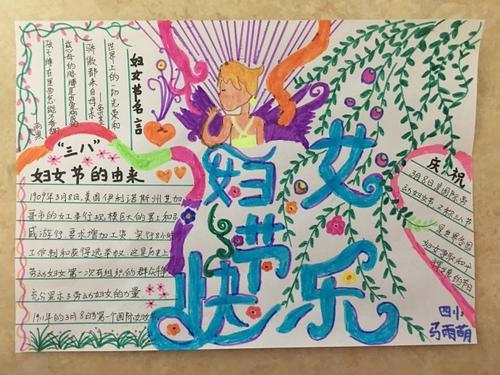 妇女节名言
世界上的一切光荣和
骄傲都来自母亲
慈母的胳膊是慈爱构成的
孩子睡在里面怎能不香甜
雨果
“三八”
妇女节的由来
1909年3月8日,美国伊利诺斯州芝加
哥市的女工举行规模巨大的罢工和示
威游行,要求增加工资,实行8小时
工作制和获得选举权.这是历史上
劳动妇女第一次有组织的群众斗争
充分显示了劳动妇女的力量
1911年的3月8日为第一个国际妇女节
妇女
节
快乐
庆祝
3月8日是国际劳
动妇女节
是世界各国
妇女争取和平
四小
马雨萌